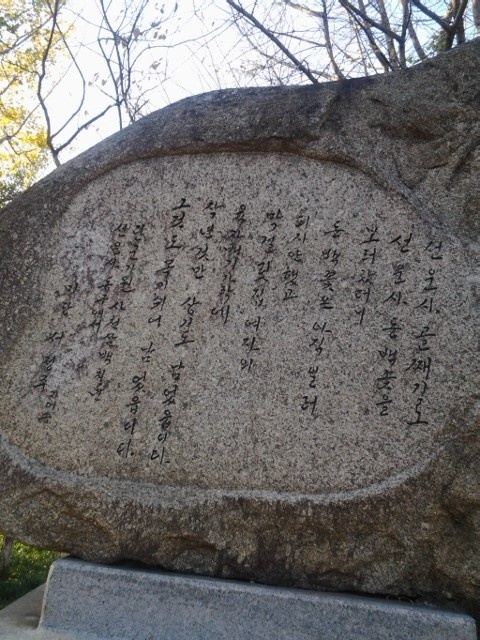 선운사 골째기로
선운사 동백꽃을
보러 갔더니
동백꽃은 아직 일러
피지 안했고
막걸릿집 여자의
육자배기 가락에
작년것만 상기도 남었읍디다.
그것도 목이 쉬여 남었읍디다.
미당 서정주